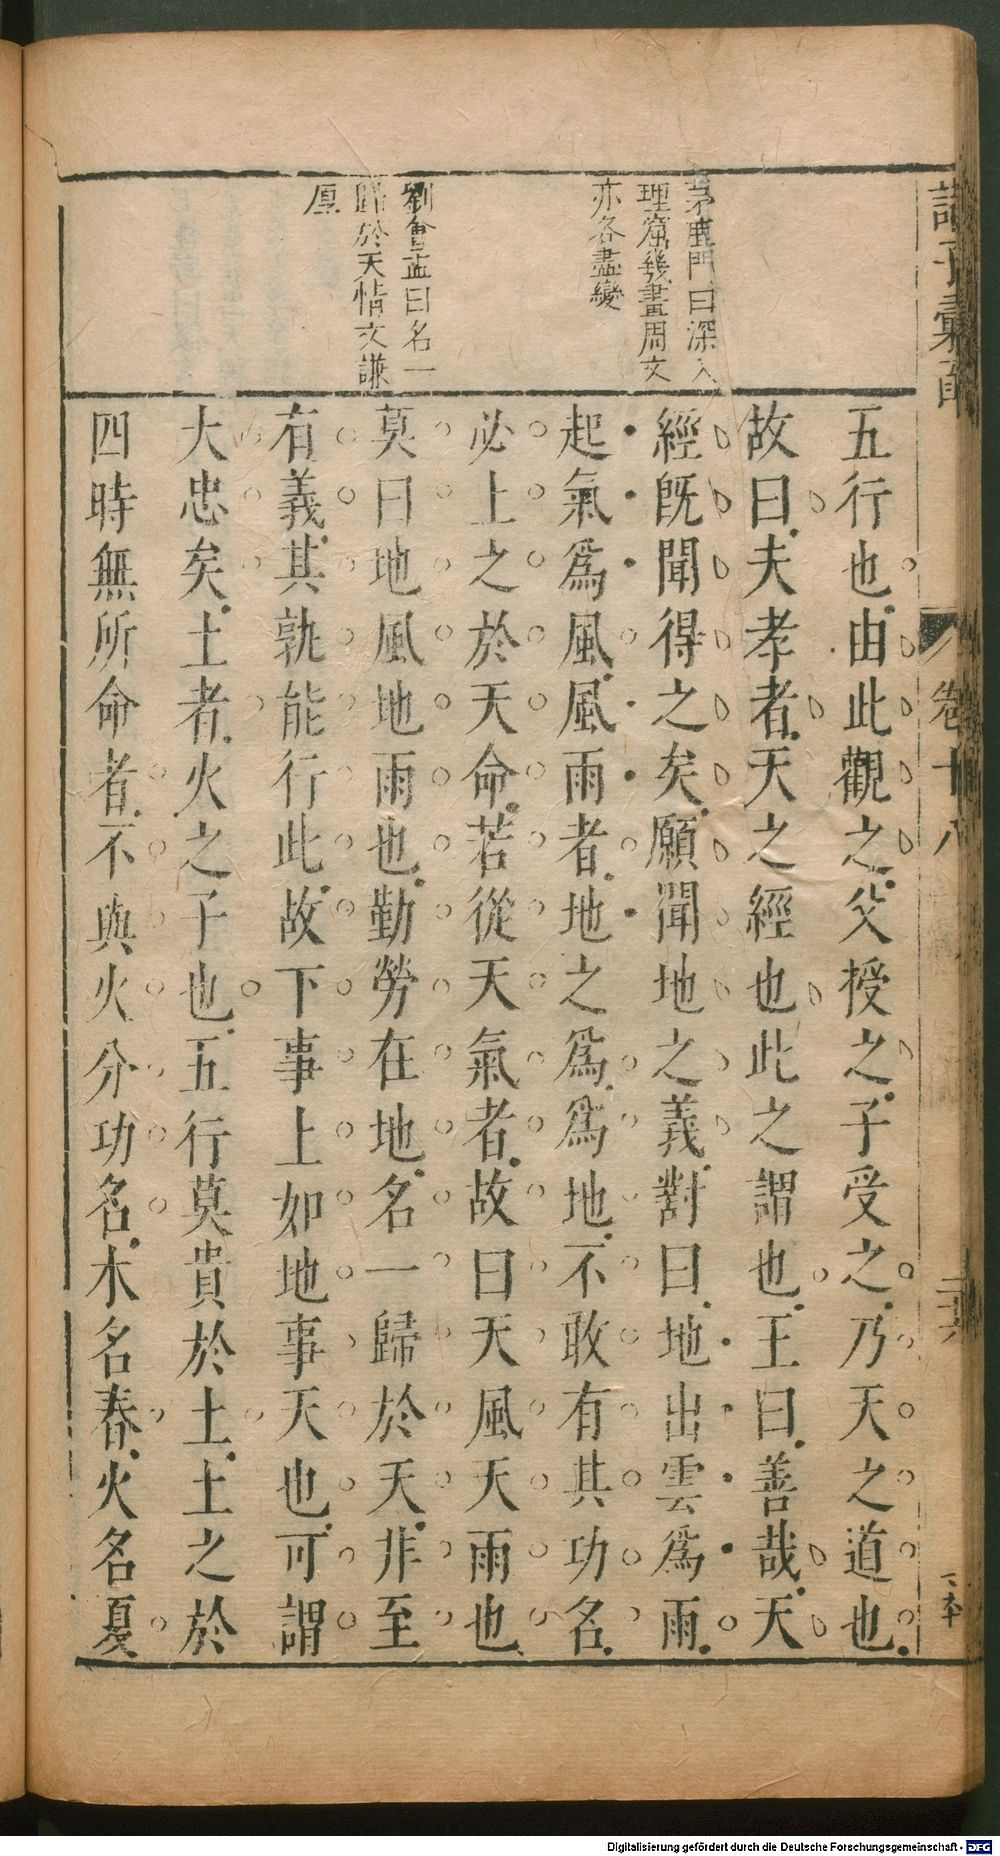 卷十八
茅鹿門曰深入
理窟幾畫周文
亦各盡變
劉會孟曰名一
歸於天情文謙
厚
五行也由此觀之父授之子受之乃天之道也
故曰夫孝者天之經也此之謂也王曰善哉天
經既聞得之矣願聞地之義對曰地出雲爲雨
起氣爲風風雨者地之爲爲地不敢有其功名
必上之於天命若從天氣者故曰天風天雨也
莫曰地風地雨也勤勞在地名一歸於天非至
有義其孰能行此故下事上如地事天也可謂
大忠矣土者火之子也五行莫貴於土土之於
四時無所命者不與火分功名木名春火名夏
Digitalisierung gefördert durch die Deutsche Forschungsgemeinschaft - DFG